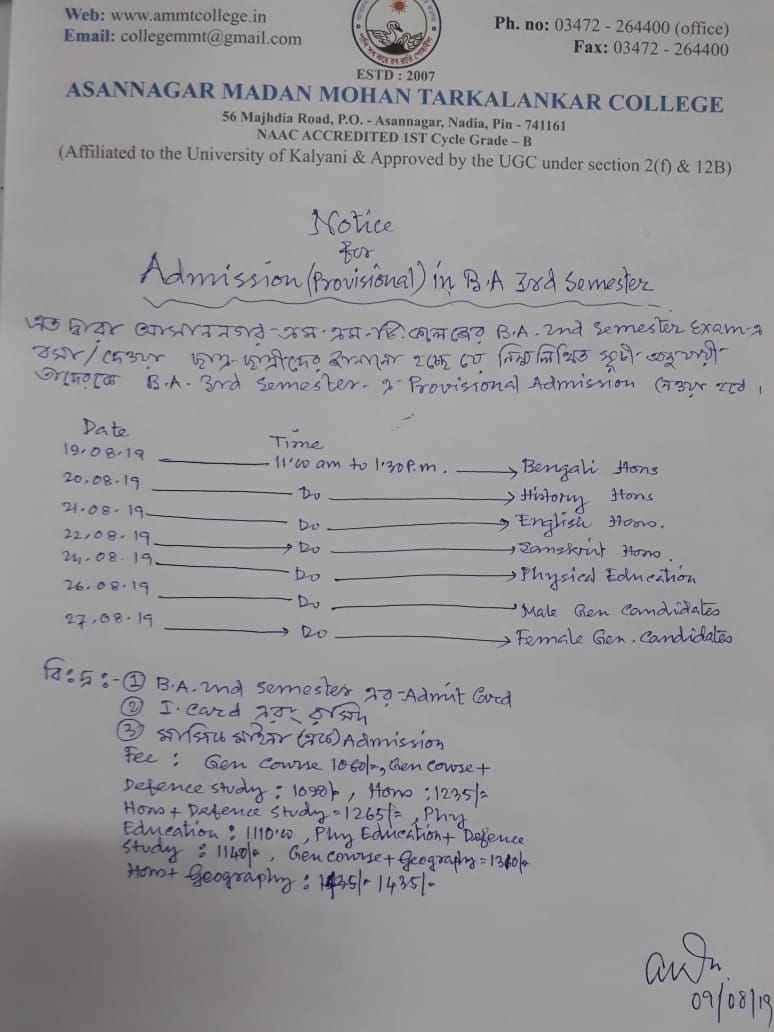 Web: www.ammtcollege.in
Email: collegemmt@gmail.com
Ph. no: 03472 - 264400 (office)
Fax: 03472 - 264400
ESTD : 2007
ASANNAGAR MADAN MOHAN TARKALANKAR COLLEGE
56 Majhdia Road, P.O. - Asannagar, Nadia, Pin - 741161
NAAC ACCREDITED 1ST Cycle Grade – B
(Affiliated to the University of Kalyani & Approved by the UGC under section 2(f) & 12B)
Notice
for
Admission (Provisional) in B.A 3rd Semester
এত দ্বারা আসাননগর এম. এম. টি. কলেজের B.A. 2nd Semester Exam-এ
বসা/দেওয়া ছাত্র-ছাত্রীদের জানানো হচ্ছে যে নিম্নলিখিত সূচী অনুযায়ী
তাদেরকে B.A. 3rd Semester-এ Provisional Admission দেওয়া হবে।
Date Time
19.08.19 11.00 am to 1.30 P.m. Bengali Hons
20.08.19 Do History Hons
21.08.19 Do English Hons.
22.08.19 Do Sanskrit Hons.
24.08.19 Do Physical Education
26.08.19 Do Male Gen Candidates
27.08.19 Do Female Gen. Candidates
বিঃদ্রঃ- ① B.A. 2nd Semester এর Admit Card
② I. Card এবং রসিদ
③ Admission
Fee : Gen Course 1060/-, Gen Course +
Defence Study : 1090/-, Hons : 1235/-
Hons + Defence Study = 1265/-, Phy
Education : 1110.00, Phy Education + Defence
Study : 1140/-, Gen course + Geography =
Hons + Geography : 1435/-
09/08/19